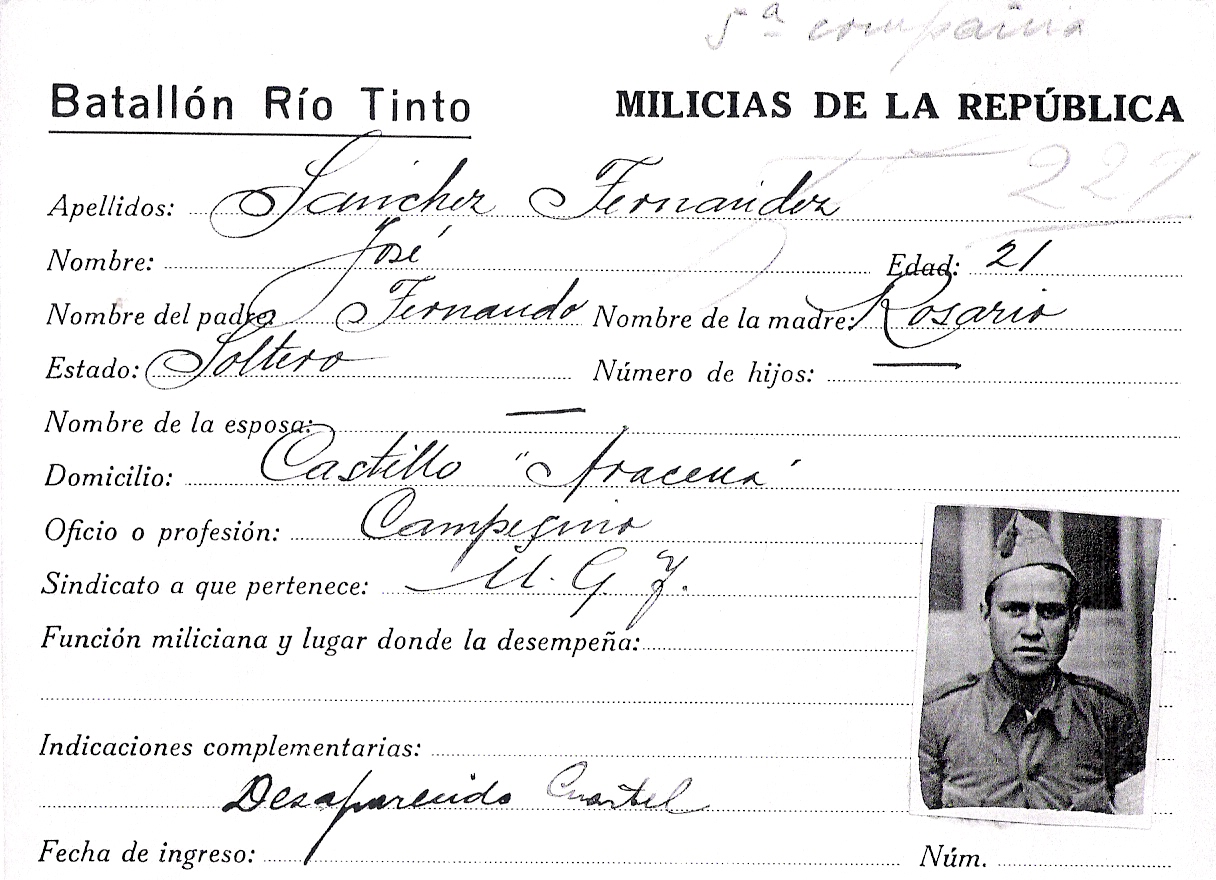 5ª compañia
Batallón Río Tinto MILICIAS DE LA REPÚBLICA
227
Apellidos: Sánchez Fernández
Nombre: José Edad: 21
Nombre del padre: Fernando Nombre de la madre: Rosario
Estado: Soltero Número de hijos: —
Nombre de la esposa: —
Domicilio: Castillo "Aracena"
Oficio o profesión: Campesino
Sindicato a que pertenece: U. G. T.
Función miliciana y lugar donde la desempeña:
Indicaciones complementarias:
Desaparecido Cuartel
Fecha de ingreso: Núm.